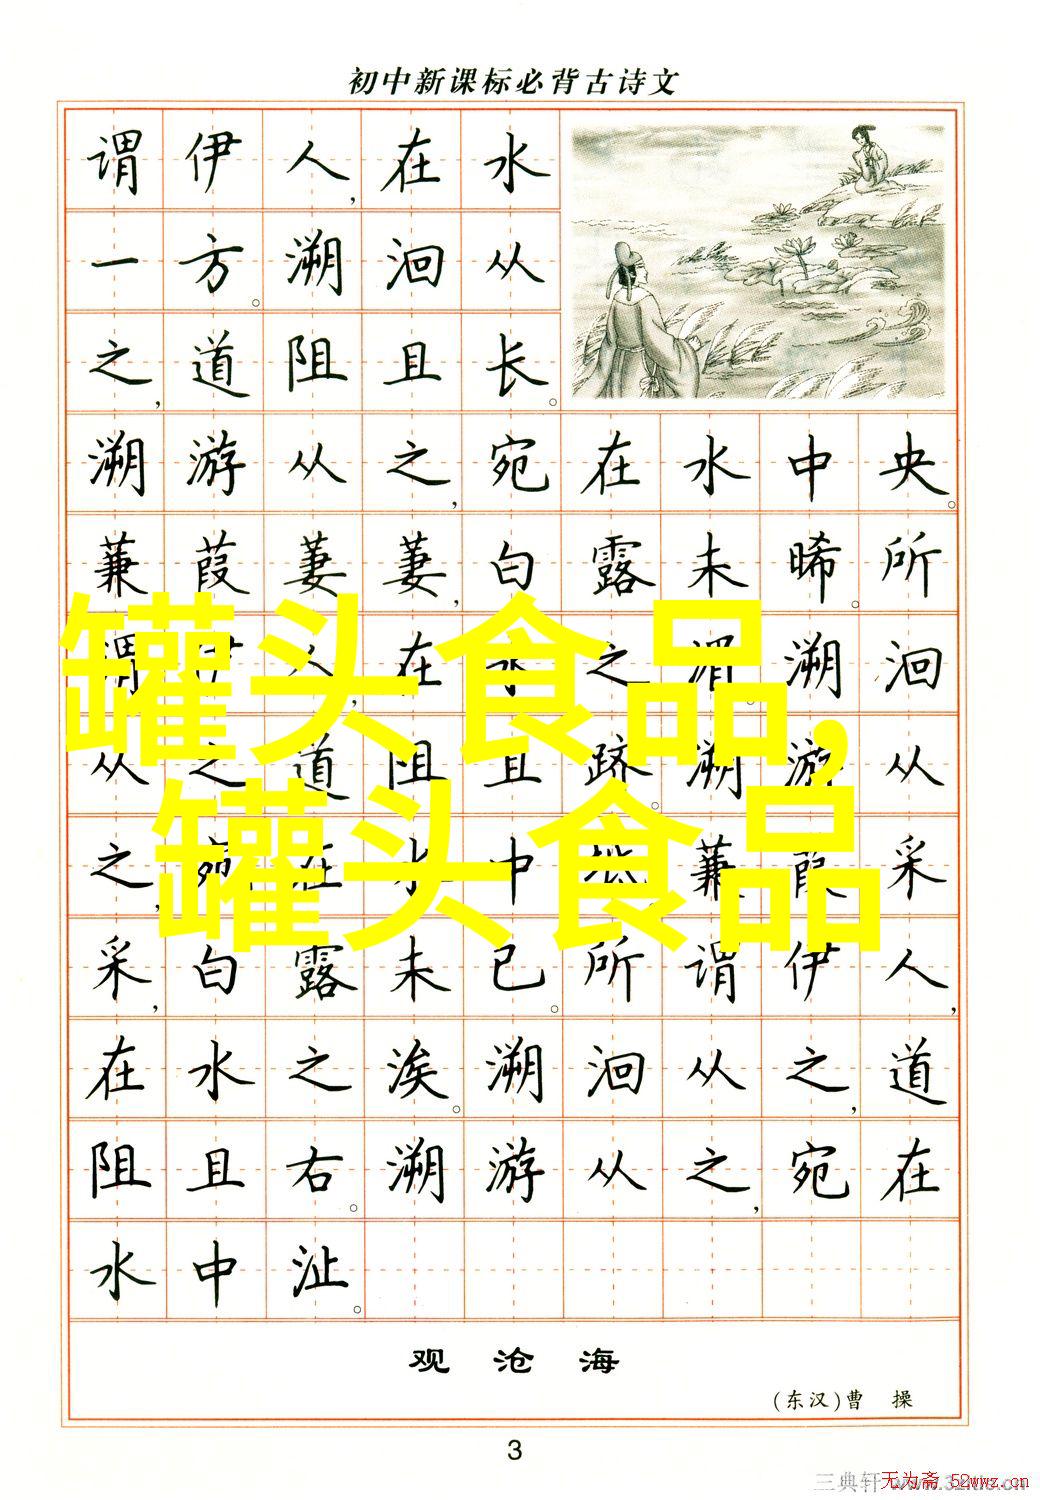 初中新课标必背古诗文
谓伊人,在水
一方。溯洄从
之,道阻且长。
溯游从之,宛在水中央。
蒹葭萋萋,白露未晞。所
谓伊人,在水之湄。溯洄
罐头食品,
从之道阻且跻。溯游从
罐头食品
之,宛在水中坻。蒹葭采
采,白露未已。所谓伊人,
在水之涘。溯洄从之,道
阻且右。溯游从之,宛在
水中沚。
观沧海
(东汉)曹操
3
三典轩
无为斋 52wwz.cn